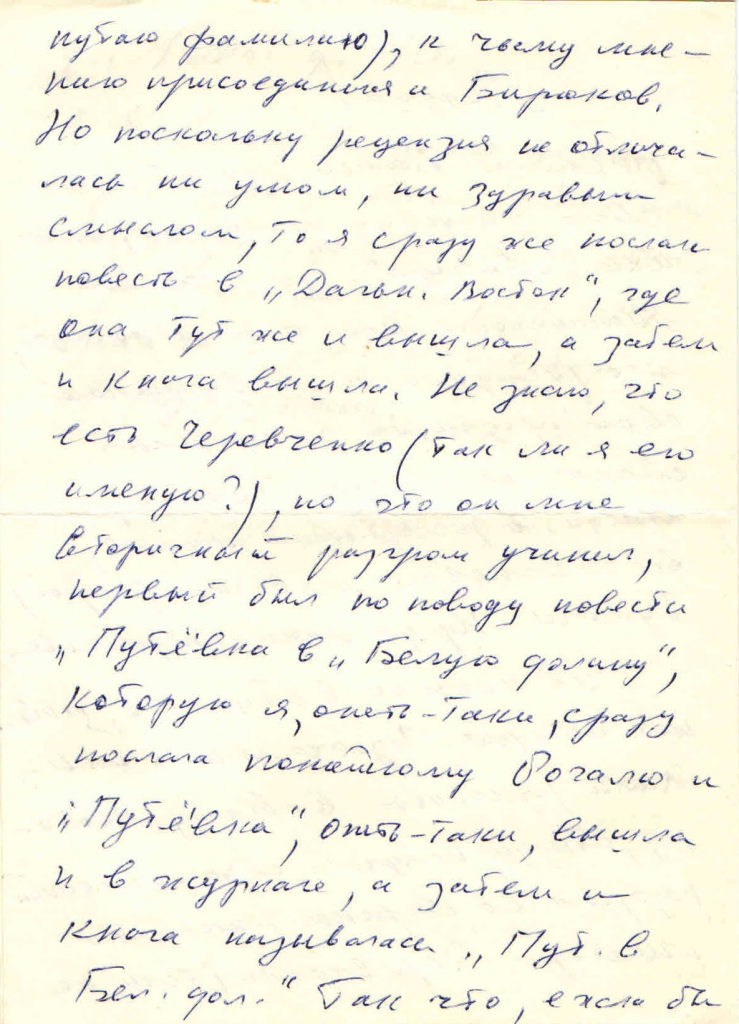 путаю фамилию), к чьему мне-
нию присоединился и Бирюков.
Но поскольку рецензия не отлича-
лась ни умом, ни здравым
смыслом, то я сразу же послала
повесть в „Дальн. Восток“, где
она тут же и вышла, а затем
и книга вышла. Не знаю, что
есть Черевченко (так ли я его
именую?), но что он мне
вторичный разгром учинил,
первый был по поводу повести
„Путёвка в „Белую долину“,
которую я, опять-таки, сразу
послала покойному Рогалю и
„Путёвка“, опять-таки, вышла
и в журнале, а затем и
книга называлась „Пут. в
Бел. дол.“ Так что, ежели бы